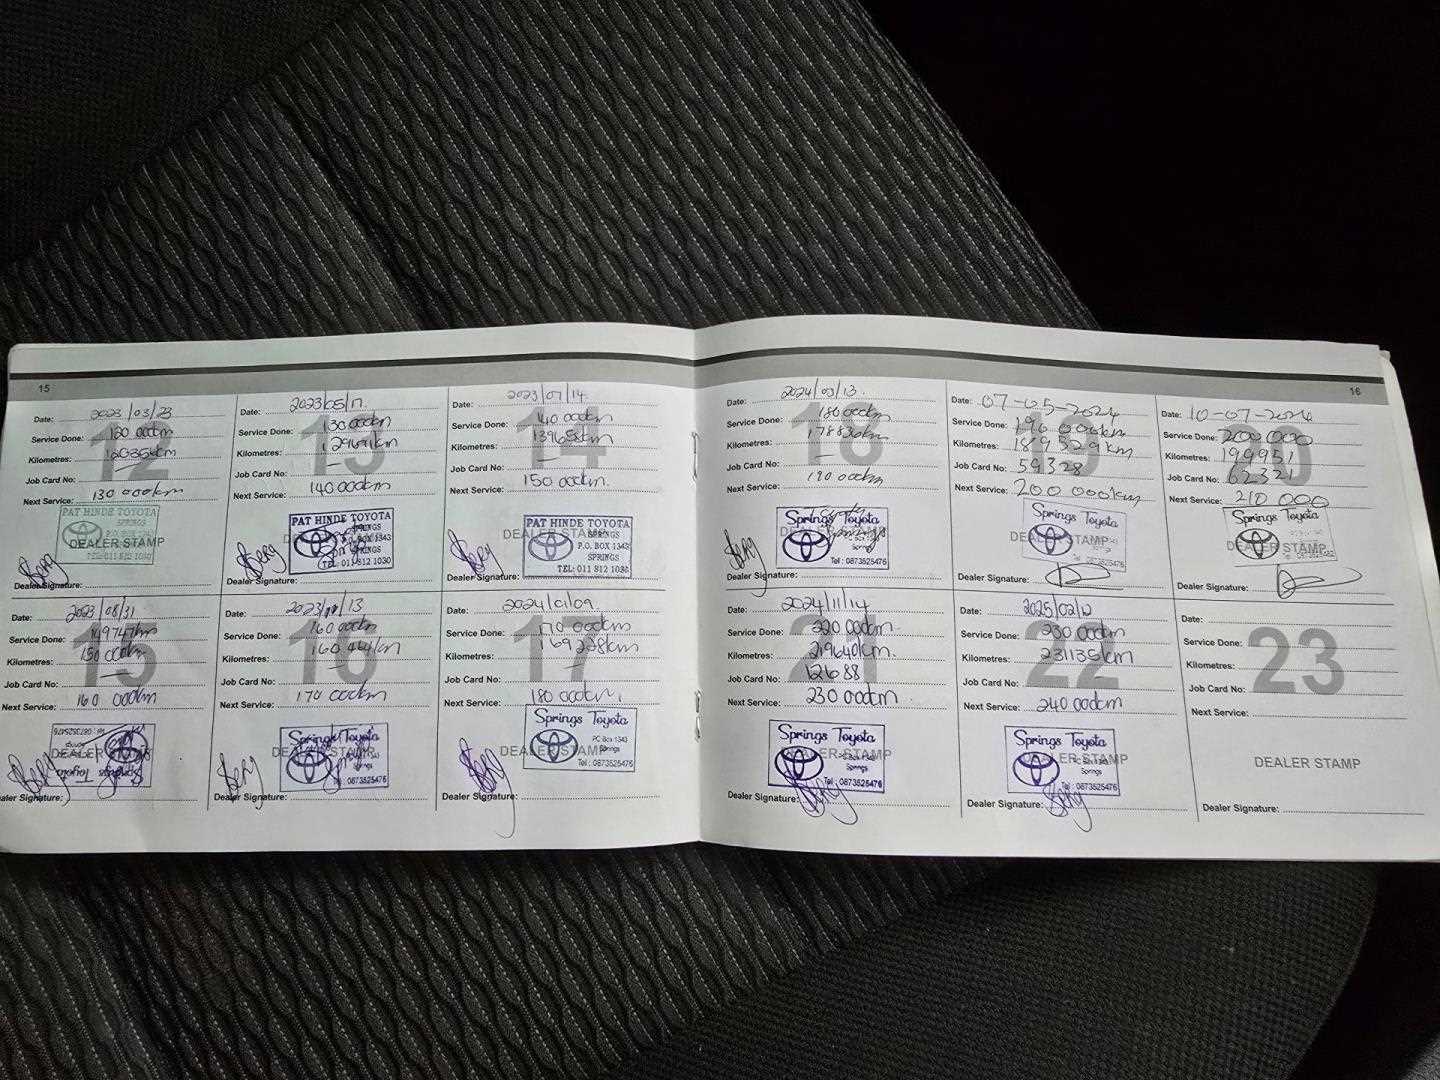 15
Date: 2023/03/23
Service Done: 120 000km
Kilometres:
Job Card No: —
Next Service: 130 000km
PAT HINDE TOYOTA
SPRINGS
SPRINGS
TEL: 011 812 1030
DEALER STAMP
Dealer Signature:
12
Date: 2023/05/17.
Service Done: 130 000km
Kilometres: 129691km
Job Card No: —
Next Service: 140 000km
PAT HINDE TOYOTA
SPRINGS
P.O. BOX 1343
SPRINGS
TEL: 011 812 1030
Dealer Signature:
13
Date: 2023/07/14.
Service Done: 140 000km
Kilometres: 139658km
Job Card No: —
Next Service: 150 000km.
PAT HINDE TOYOTA
SPRINGS
P.O. BOX 1343
SPRINGS
TEL: 011 812 1030
DEALER STAMP
Dealer Signature:
14
Date: 2023/08/31
Service Done: 149747km
Kilometres: 150 000km
Job Card No: —
Next Service: 160 000km
Springs Toyota
Springs
Tel : 0873525476
DEALER STAMP
Dealer Signature:
15
Date:
Service Done: 160 000km
Kilometres: 160 464km
Job Card No: —
Next Service: 170 000km
Springs Toyota
Springs
Tel : 0873525476
DEALER STAMP
Dealer Signature:
16
Date: 2024/01/09.
Service Done: 170 000km
Kilometres: 169 228km
Job Card No: —
Next Service: 180 000km.
Springs Toyota
PO Box 1343
Springs
Tel : 0873525476
DEALER STAMP
Dealer Signature:
17
16
Date: 2024/03/13.
Service Done: 180 000km
Kilometres: 178836km
Job Card No: —
Next Service: 190 000km
Springs Toyota
Springs
Tel : 0873525476
Dealer Signature:
18
Date: 07-05-2024
Service Done: 190 000km
Kilometres: 189529km
Job Card No: 59328
Next Service: 200 000km
Springs Toyota
PO Box 1343
Springs
DEALER STAMP
Dealer Signature:
19
Date: 10-07-2024
Service Done: 200 000
Kilometres: 199951
Job Card No: 62321
Next Service: 210 000
Springs Toyota
DEALER STAMP
Dealer Signature:
20
Date: 2024/11/14
Service Done: 220 000km.
Kilometres: 219640km.
Job Card No: 12688
Next Service: 230 000km
Springs Toyota
PO Box 1343
Springs
Tel : 0873525476
DEALER STAMP
Dealer Signature:
21
Date:
Service Done: 230 000km
Kilometres: 231135km
Job Card No:
Next Service: 240 000km
Springs Toyota
PO Box 1343
Springs
Tel : 0873525476
DEALER STAMP
Dealer Signature:
22
Date:
Service Done:
Kilometres:
Job Card No:
Next Service:
23
DEALER STAMP
Dealer Signature: